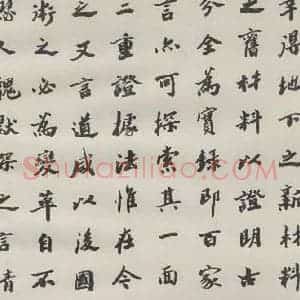 得地下之新材料
之舊材料以證明古
分全為實錄即百家
言亦可探索其一面
二重證據法惟在今
之又言道咸以後國
術之必為變革自不
人愧默深之言
Shufaziliao.com